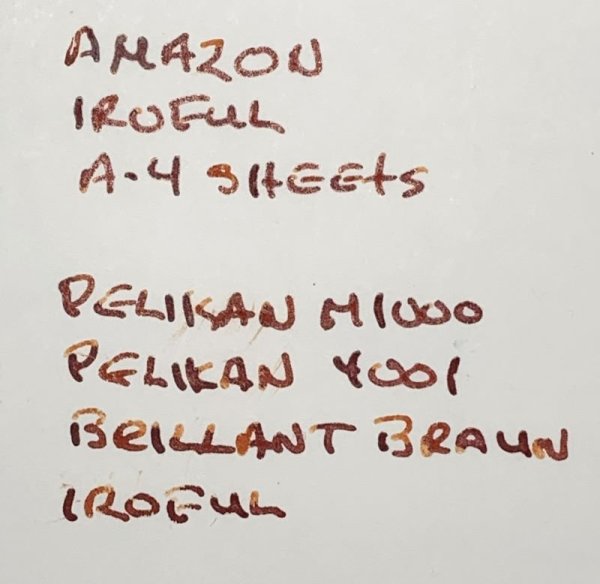 AMAZON
IROFUL
A-4 SHEETS
PELIKAN M1000
PELIKAN 4001
BRILLANT BRAUN
IROFUL